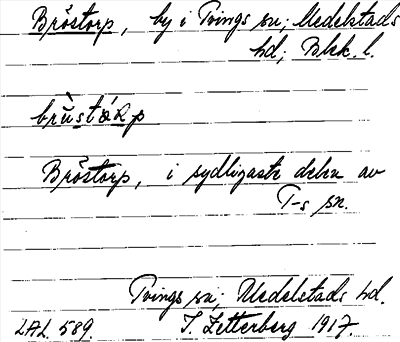 Bröstorp, by i Tvings sn; Medelstads
hd; Blek. l.
brùstárp
Bröstorp, i sydligaste delen av
T-s sn.
Tvings sn; Medelstads hd.
LAL. 589. I. Zetterberg 1917.